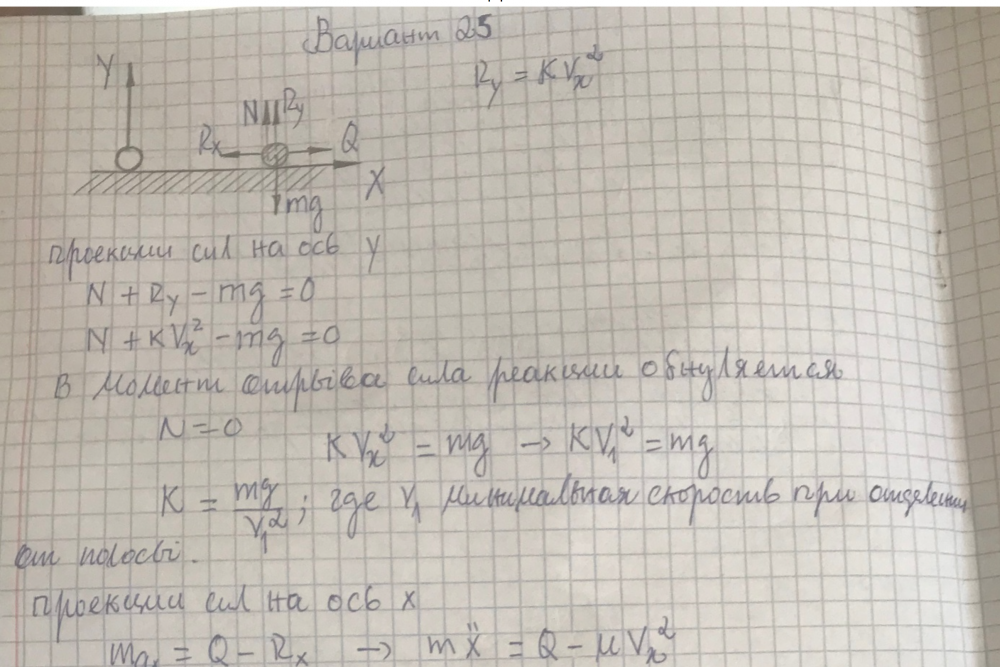 Вариант 25
R_y = KV_x^2
Y
N R_y
R_x Q
X
mg
проекции сил на ось y
N + R_y - mg = 0
N + KV_x^2 - mg = 0
В момент отрыва сила реакции обнуляется
N = 0 KV_x^2 = mg → KV_1^2 = mg
K = mg/V_1^2 ; где V_1 минимальная скорость при отделении
от полосы.
проекции сил на ось x
ma_x = Q - R_x → mẍ = Q - μV_x^2